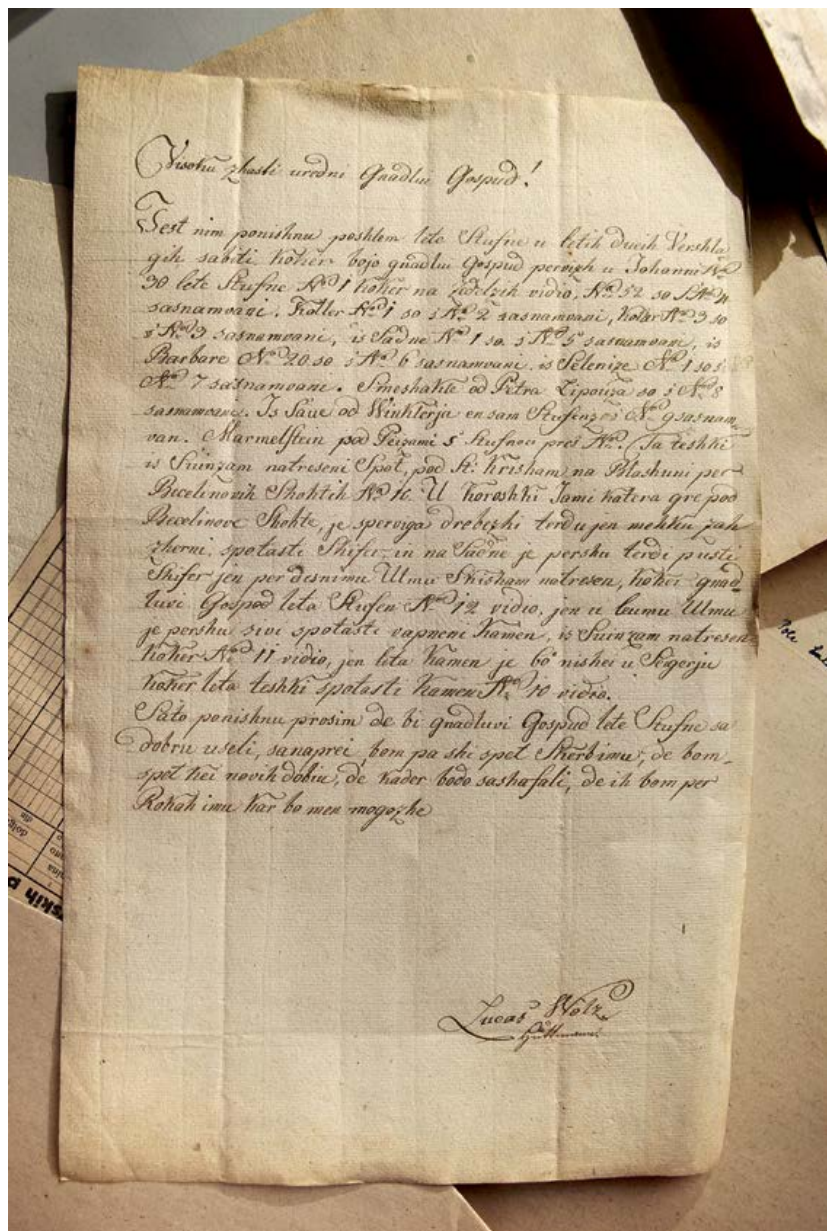 Visoku zhasti uredni Gnadlui Gospud!
Jest nim ponishnu poshlem lete Stufne u letih dueih Vershla
gih sabiti koker bojo gnadlui Gospud permeh u Johanni No
30 lete Stufne No 1 koker na zedelzih vidio, No 52 so s No 4
sasnamvani. Koller No 1 so s No 2 sasnamvani, Kolar No 3 so
s No 3 sasnamvani, is Sadne No 1 so s No 5 sasnamvani, is
Barbare No 20 so s No 6 sasnamvani, is Selenize No 1 so s
No 7 sasnamvani. Smeshakte od Petra Lipouza so s No 8
sasnamvani. Is Saue od Winklerja en sam Stufenz s No 9 sasnam
van. Marmelstein pod Pezami s Stufnou pres No. Ta teshki
is Suinzam natreseni Spot, pod St: Krisham na Blashuni per
Becelinovih Shohtih No 16. U Koroshki Jami katera gre pod
Becelinove Shohte, je sperviga drebezhi terdu jen mehku zah
zherni spotasti Shifer, in na Sadne je pershu terdi pusti
Shifer jen per desnimu Ulmu Skisham natresen, koker gnad
luvi Gospod leta Stufen No 12 vidio, jen u leumu Ulmu
je pershu sivi spotasti vapneni Kamen, is Suinzam natresen
koker No 11 vidio, jen leta Kamen je bo nishei u Seigerju
koker leta teshki spotasti Kamen No 10 vidio.
Sato ponishnu prosim de bi gnadluvi Gospud lete Stufne sa
dobru useli, sanaprei, bom pa shi spet Skerb imu, de bom
spet kei novih dobiu, de kader bodo sashafali, de ih bom per
Rokah imu kar bo men mogozhe
Lucas Wolz
Huttmann